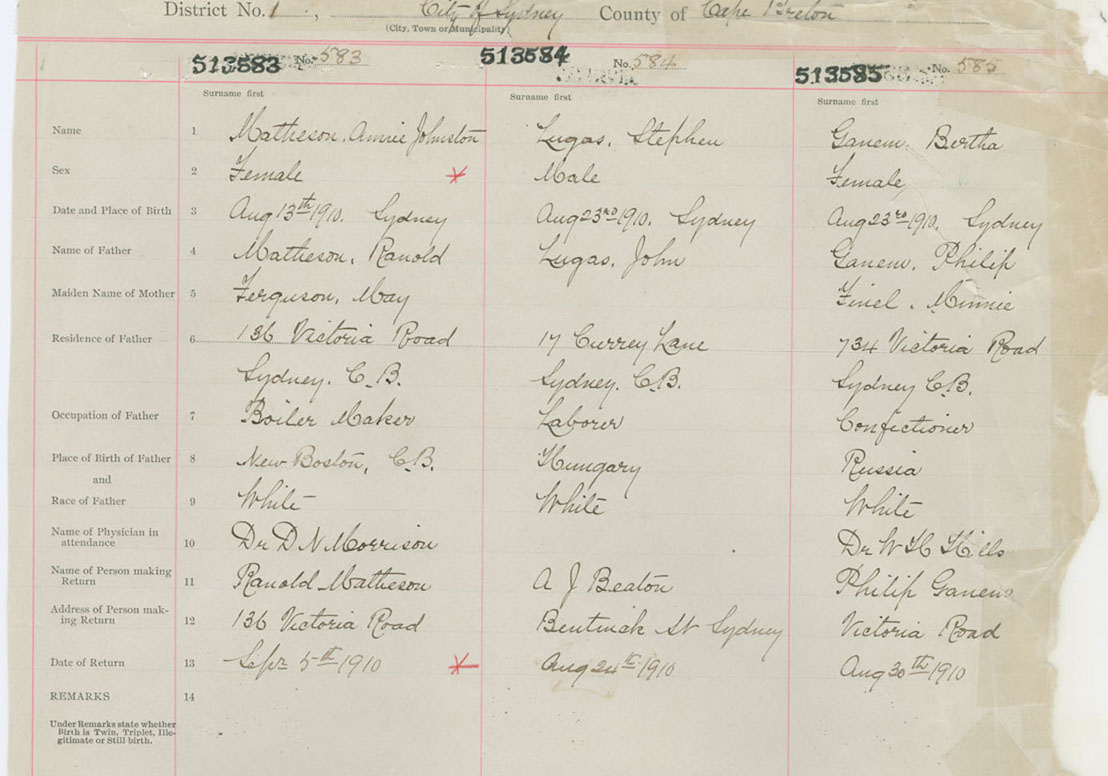 District No. 1, City of Sydney County of Cape Breton
(City, Town or Municipality)
513583 No. 583 513584 No. 584 513585 No. 585
Surname first Surname first Surname first
Name 1 Matheson, Annie Johnston Lugas, Stephen Ganem, Bertha
Sex 2 Female Male Female
Date and Place of Birth 3 Aug 13th 1910, Sydney Aug 23rd 1910, Sydney Aug 23rd 1910, Sydney
Name of Father 4 Matheson, Ranold Lugas, John Ganem, Philip
Maiden Name of Mother 5 Ferguson, May Finel, Minnie
Residence of Father 6 136 Victoria Road 17 Currey Lane 734 Victoria Road
Sydney, C.B. Sydney, C.B. Sydney C.B.
Occupation of Father 7 Boiler Maker Laborer Confectioner
Place of Birth of Father 8 New Boston, C.B. Hungary Russia
and
Race of Father 9 White White White
Name of Physician in
attendance 10 Dr D N Morrison Dr W H Hills
Name of Person making
Return 11 Ranold Matheson A J Beaton Philip Ganem
Address of Person mak-
ing Return 12 136 Victoria Road Bentinck St Sydney Victoria Road
Date of Return 13 Sept 5th 1910 Aug 24th 1910 Aug 30th 1910
REMARKS 14
Under Remarks state whether
Birth is Twin, Triplet, Ille-
gitimate or Still birth.